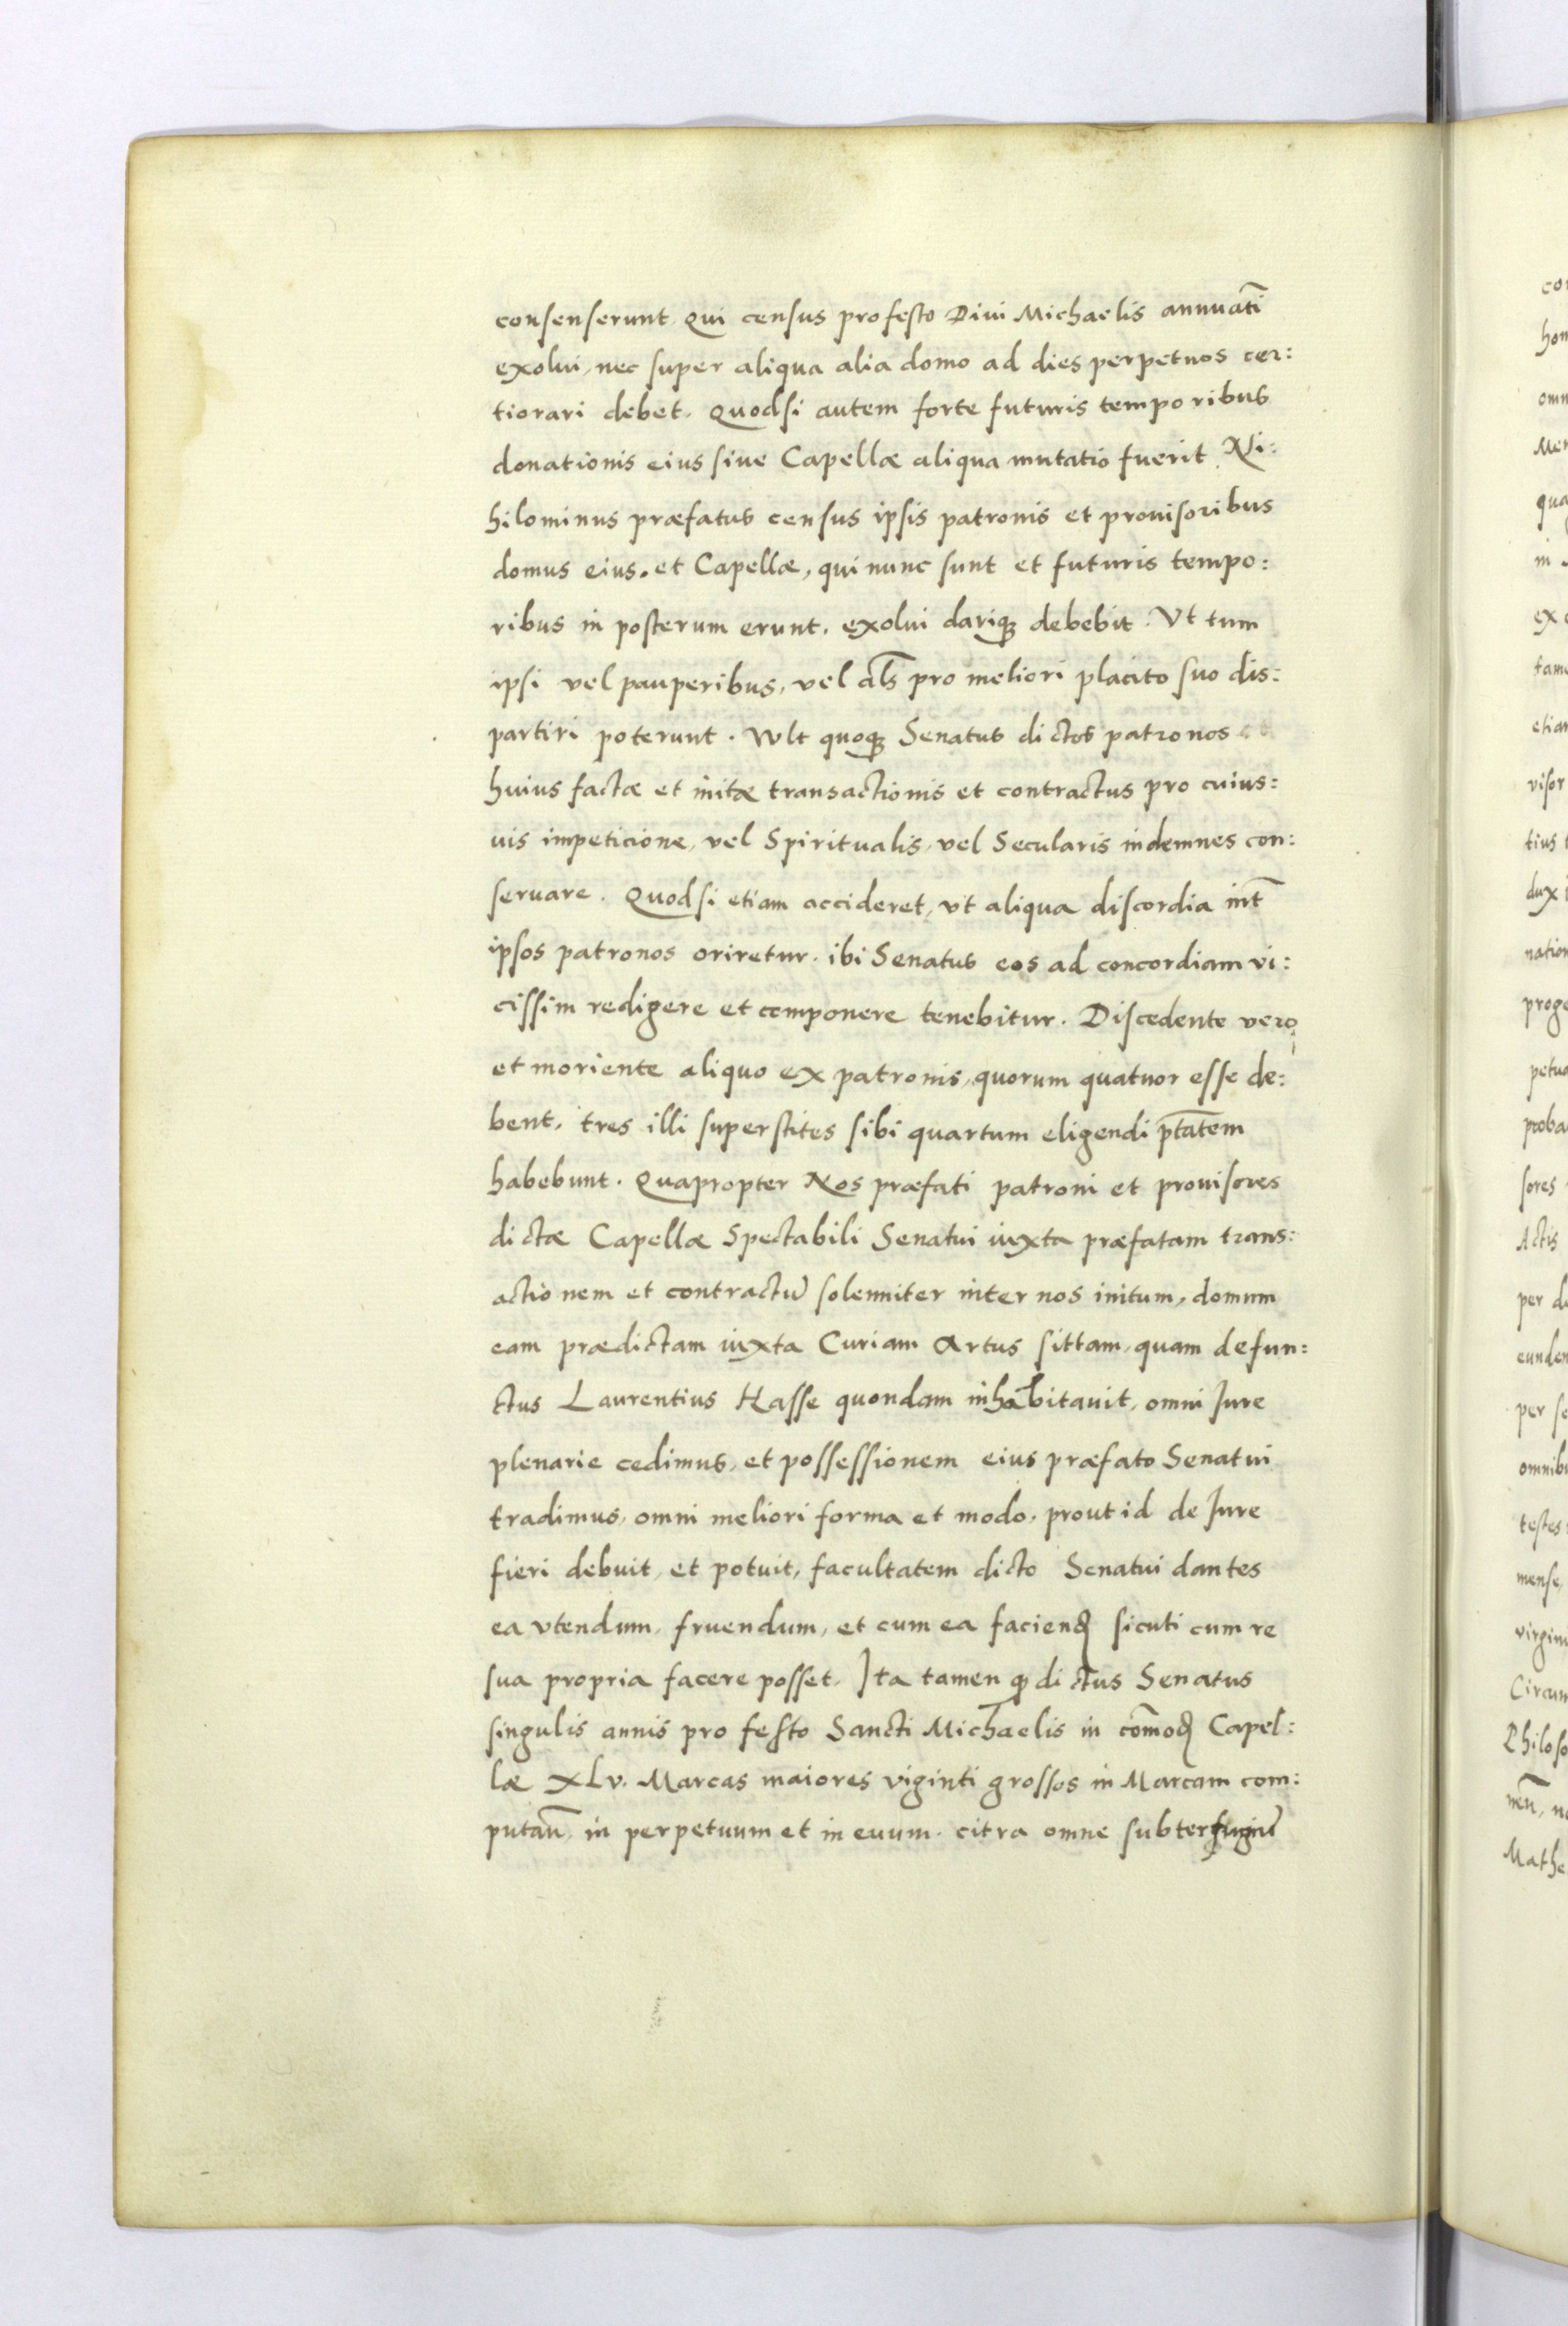 consenserunt. Qui census pro festo Diui Michaelis annuatī
exolui, nec super aliqua alia domo ad dies perpetuos cer:
tiorari debet. Quodsi autem forte futuris temporibus
donationis eius siue Capellæ aliqua mutatio fuerit. Ni:
hilominus præfatus census ipsis patronis et prouisoribus
domus eius. et Capellæ, qui nunc sunt et futuris tempo:
ribus in posterum erunt. exolui dariqꝫ debebit. Vt tum
ipsi vel pauperibus, vel al̄s pro meliori placito suo dis:
partiri poterunt. Wlt quoqꝫ Senatus dictos patronos
huius factæ et initæ transactionis et contractus pro cuius:
uis impeticione, vel Spiritualis, vel Secularis indemnes con:
seruare. Quodsi etiam accideret, vt aliqua discordia int̄
ipsos patronos oriretur. ibi Senatus eos ad concordiam vi:
cissim redigere et componere tenebitur. Discedente vero,
et moriente aliquo ex patronis, quorum quatuor esse de:
bent, tres illi superstites sibi quartum eligendi ptātem
habebunt. Quapropter Nos præfati patroni et prouisores
dictæ Capellæ Spectabili Senatui iuxta præfatam trans:
actionem et contractū solenniter inter nos initum, domum
eam prædictam iuxta Curiam Artus sittam, quam defun:
ctus Laurentius Hasse quondam inhabitauit, omni Jure
plenarie cedimus, et possessionem eius præfato Senatui
tradimus, omni meliori forma et modo, prout id de Jure
fieri debuit, et potuit, facultatem dicto Senatui dantes
ea vtendum, fruendum, et cum ea faciend̄ sicuti cum re
sua propria facere posset. Ita tamen ꝙ dictus Senatus
singulis annis pro festo Sancti Michaelis in com̄od̄ Capel:
læ XLv. Marcas maiores viginti grossos in Marcam com:
putan̄, in perpetuum et in euum. citra omne subterfugiū
co
hon
omn
Mer
qua
in
ex
tame
etiam
visor
tius
dux
nation
proge
petua
proba
sores
Actis
per d
eunden
per se
omnib
testes
mense,
virgini
Circum
Philoso
men̄, n
Mathe